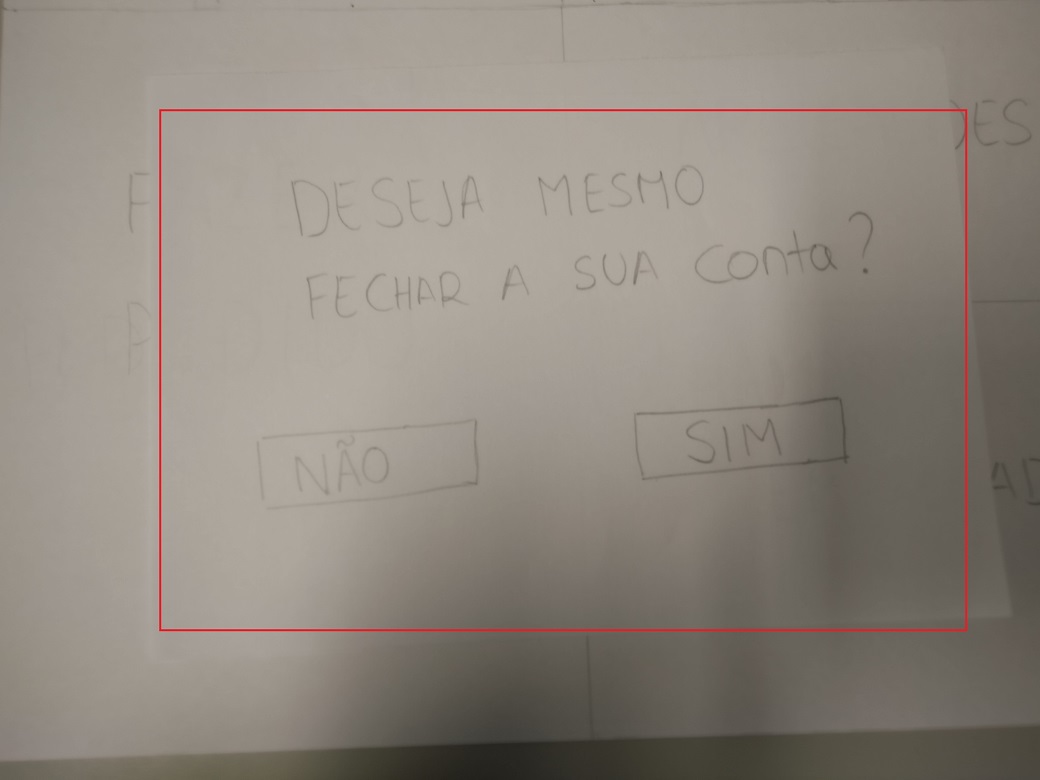 DES
F
DESEJA MESMO
FECHAR A SUA conta?
P
NÃO
SIM
AD